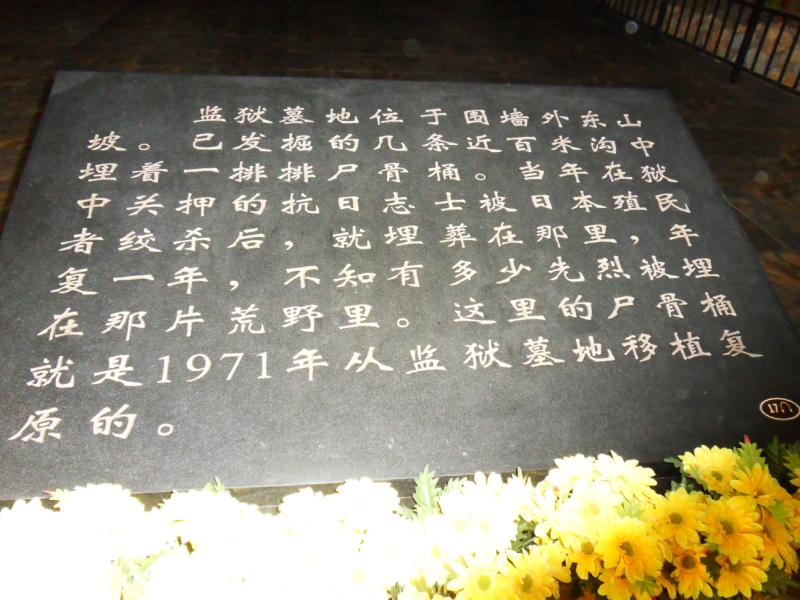 监狱墓地位于围墙外东山
坡。已发掘的几条近百米沟中
埋着一排排尸骨桶。当年在狱
中关押的抗日志士被日本殖民
者绞杀后，就埋葬在那里，年
复一年，不知有多少先烈被埋
在那片荒野里。这里的尸骨桶
就是1971年从监狱墓地移植复
原的。
17